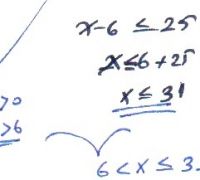 x-6 ≤ 25
x ≤ 6 + 25
x ≤ 31
>0
>6
6 < x ≤ 3